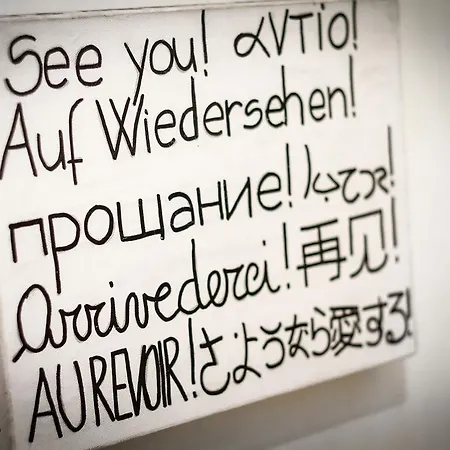 See you! αντίο!
Auf Wiedersehen!
прощание!
Arrivederci! 再见!
AU REVOIR! さようなら愛する!